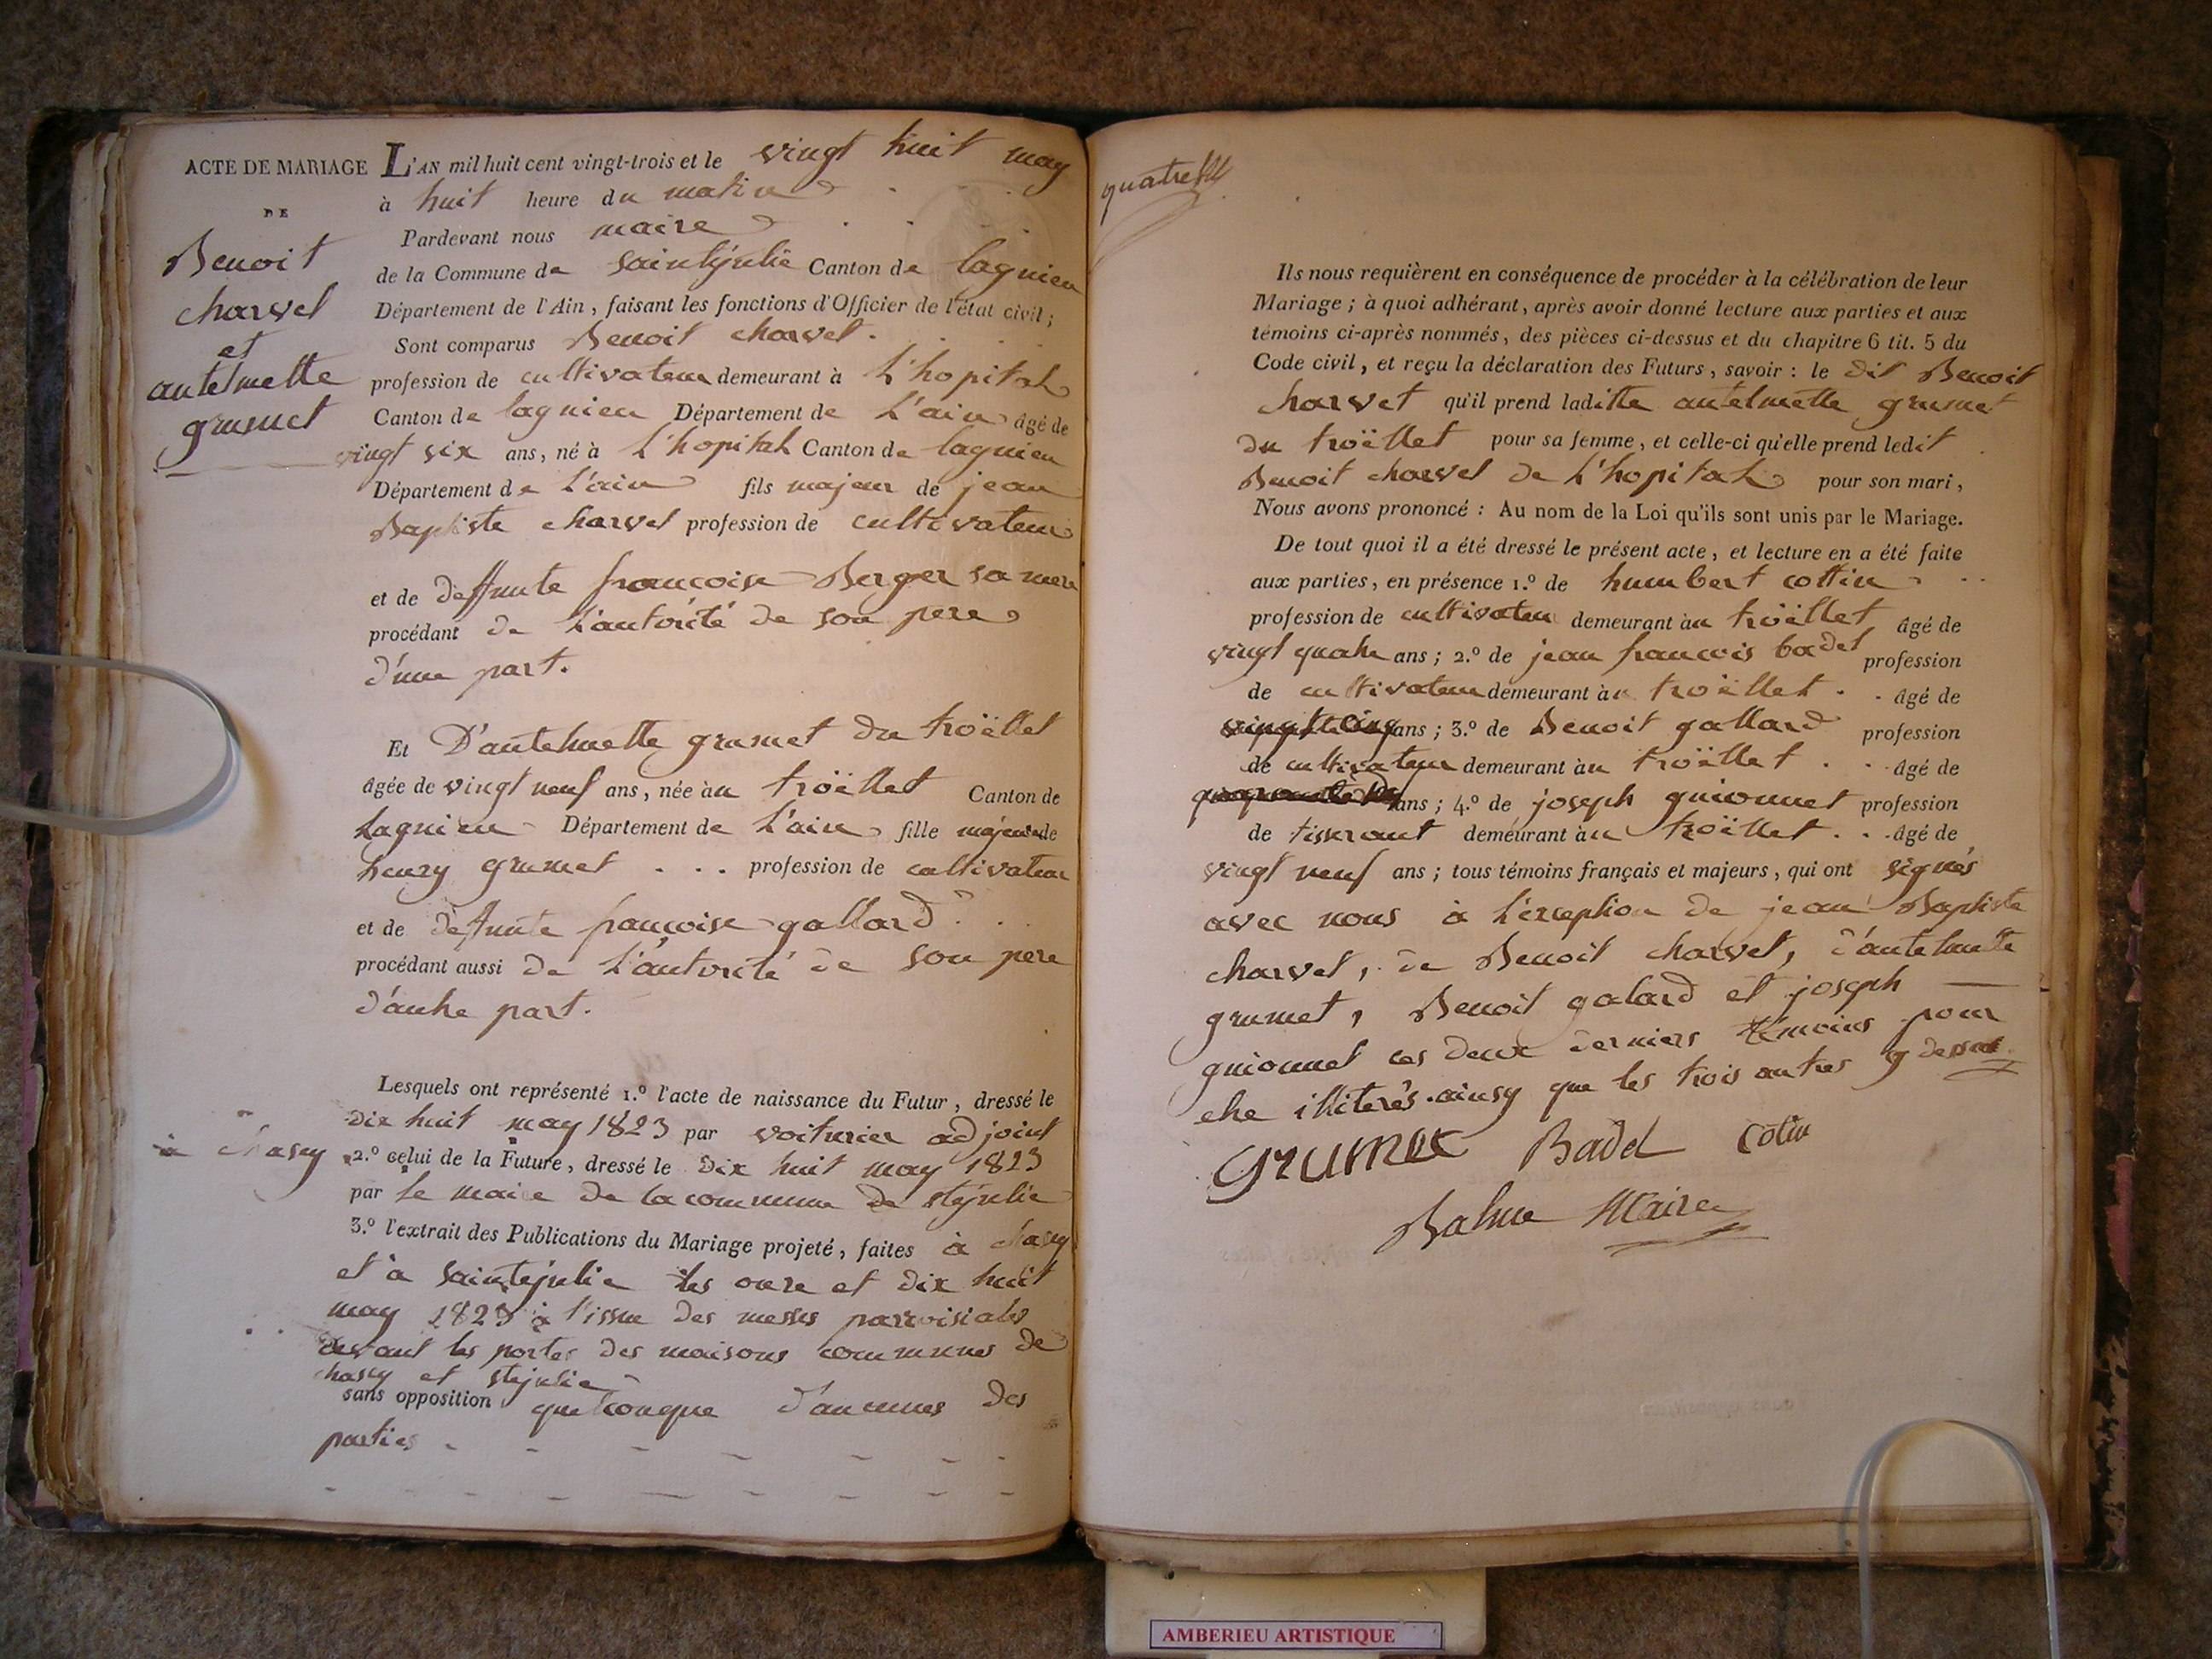 ACTE DE MARIAGE
DE
Benoit
charvet
et
antelmette
grumet
L'AN mil huit cent vingt-trois et le vingt huit may
à huit heure du matin
Pardevant nous maire
de la Commune de saintejulie Canton de lagnieu
Département de l'Ain, faisant les fonctions d'Officier de l'état civil;
Sont comparus Benoit charvet.
profession de cultivateur demeurant à L'hopital
Canton de lagnieu Département de L'ain âgé de
vingt six ans, né à L'hopital Canton de lagnieu
Département de L'ain fils majeur de jean
Baptiste charvet profession de cultivateur
et de deffunte francoise Berger sa mere
procédant de L'autorité de son pere
d'une part.
Et D'antelmette grumet du troëllet
âgée de vingt neuf ans, née àu troëllet Canton de
Lagnieu Département de L'ain fille majeure de
henry grumet . . . profession de cultivateur
et de deffunte francoise gallard
procédant aussi de L'autorité de son pere
d'autre part.
Lesquels ont représenté 1.º l'acte de naissance du Futur, dressé le
dix huit may 1823 par voiturier adjoint
à chasey 2.º celui de la Future, dressé le dix huit may 1823
par le maire de la commune de stejulie
3.º l'extrait des Publications du Mariage projeté, faites à chasey
et à saintejulie les onze et dix huit
may 1823 à l'issue des messes parroisiales
devant les portes des maisons communes de
chasey et stejulie
sans opposition quelconque d'aucunes des
parties
Ils nous requièrent en conséquence de procéder à la célébration de leur
Mariage; à quoi adhérant, après avoir donné lecture aux parties et aux
témoins ci-après nommés, des pièces ci-dessus et du chapitre 6 tit. 5 du
Code civil, et reçu la déclaration des Futurs, savoir: le dit Benoit
charvet qu'il prend laditte antelmette grumet
du troëllet pour sa femme, et celle-ci qu'elle prend ledit
Benoit charvet de L'hopital pour son mari,
Nous avons prononcé: Au nom de la Loi qu'ils sont unis par le Mariage.
De tout quoi il a été dressé le présent acte, et lecture en a été faite
aux parties, en présence 1.º de humbert cottin
profession de cultivateur demeurant àu troëllet âgé de
vingt quatre ans; 2.º de jean francois badel profession
de cultivateur demeurant àu troëllet . . âgé de
ans; 3.º de Benoit gallard profession
de cultivateur demeurant àu troëllet . . âgé de
ans; 4.º de joseph guionnet profession
de tisserant demeurant àu troëllet . . . âgé de
vingt neuf ans; tous témoins français et majeurs, qui ont signés
avec nous à L'exception de jean Baptiste
charvet, de Benoit charvet, d'antelmette
grumet, Benoit galard et joseph
guionnet ces deux derniers témoins pour
etre illiterés. ainsy que les trois autres
grumet Badel cotin
Balme Maire
AMBERIEU ARTISTIQUE